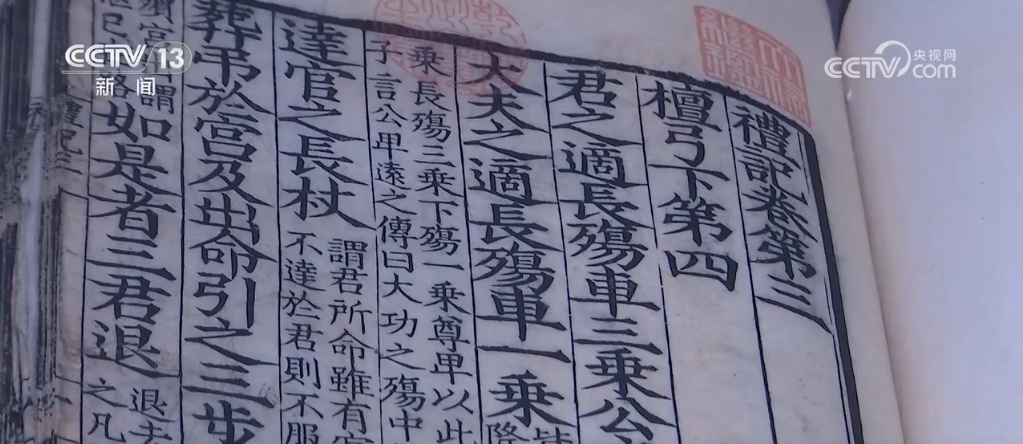 CCTV 13
新闻
央视网
CCTV com
禮記卷第三
檀弓下第四
君之適長殤車三乘公
大夫之適長殤車一乘
皆
降
乘長殤三乘下殤一乘尊卑以此
子言公卑遠之傳曰大功之殤中
達官之長杖
謂君所命雖有官
不達於君則不服
葬弔於宮及出命引之三步
宮謂
如是者三君退
退去
之凡